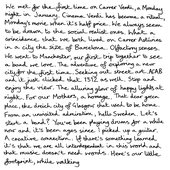 We met for the first time on Carrer Verdi, a Monday
night in January. Cinema Verdi has become a ritual,
Monday's more, when it's half price. We always seem
to be drawn to the social realist ones. What a
coincidence that we both lived on Carrer Astúries
in a city the size of Barcelona. Olfactory senses.
We went to Manchester, our first trip together to see
a band we love. The adventure of exploring a new
city for the first time. Seeking out street art. ACAB
and it just clicked that 1312 as well. Stop and
enjoy the view. The alluring glow of happy lights at
night. For our Mothers, a homage. That dear green
place, the dreich city of Glasgow that used to be home.
From an uninvited admiration, hello Sweden. Let's
start a band? You've been playing drums for a while
now and it's been ages since I picked up a guitar.
A creative connection. If there's something learned,
it's that we are all interdependent in this world and
that music doesn't need words. Here's our little
footprint, while walking